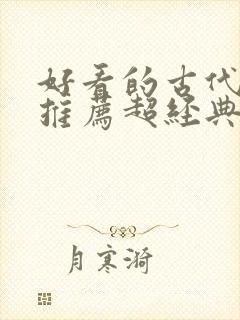 好看的古代
推薦超經典
月寒漪